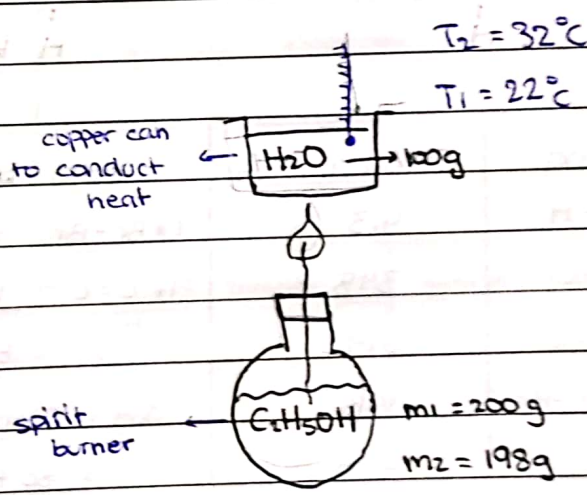 T₂ = 32°C
T₁ = 22°C
copper can
to conduct
heat
H₂O
100g
C₂H₅OH
spirit
burner
m₁ = 200g
m₂ = 198g